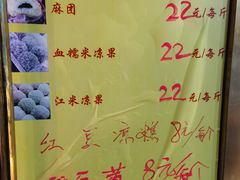 麻团 22元/每斤
血糯米凉果 22元/每斤
江米凉果 22元/每斤
红豆凉糕 8元/份
8元/份